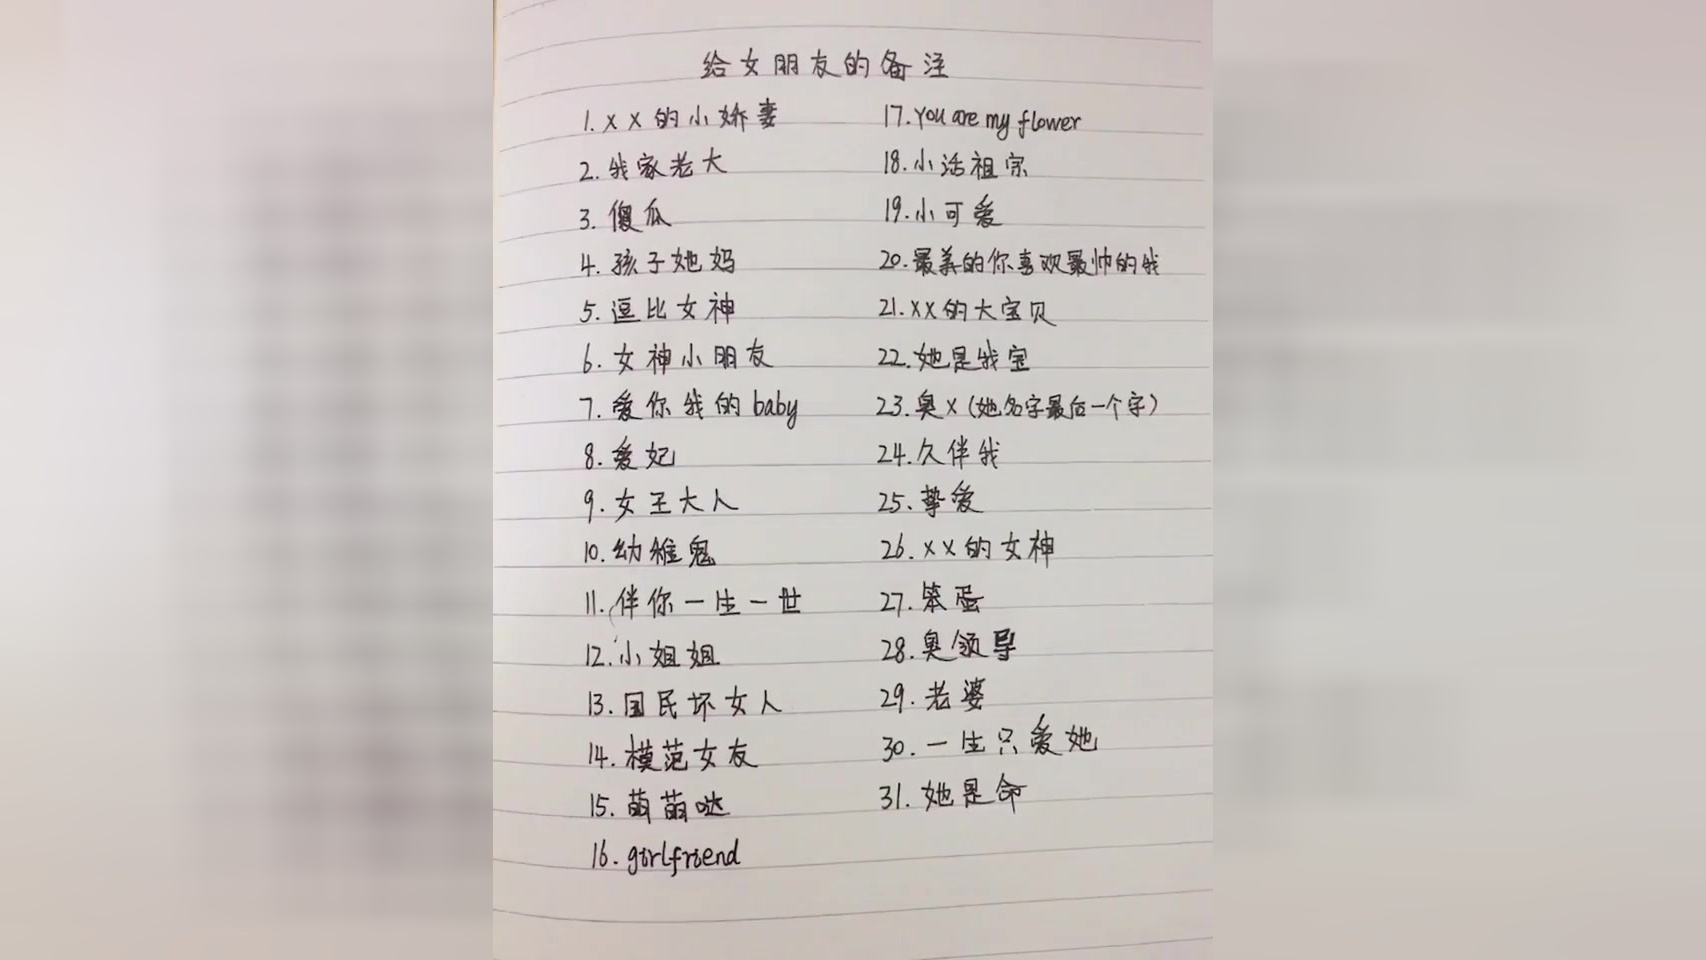 给女朋友的备注
1. x x 的小娇妻
2. 我家老大
3. 傻瓜
4. 孩子她妈
5. 逗比女神
6. 女神小朋友
7. 爱你我的baby
8. 爱妃
9. 女王大人
10. 幼稚鬼
11. 伴你一生一世
12. 小姐姐
13. 国民坏女人
14. 模范女友
15. 萌萌哒
16. girlfriend
17. You are my flower
18. 小活祖宗
19. 小可爱
20. 最美的你喜欢最帅的我
21. xx的大宝贝
22. 她是我宝
23. 奥x(她名字最后一个字)
24. 久伴我
25. 挚爱
26. xx的女神
27. 笨蛋
28. 奥领导
29. 老婆
30. 一生只爱她
31. 她是命